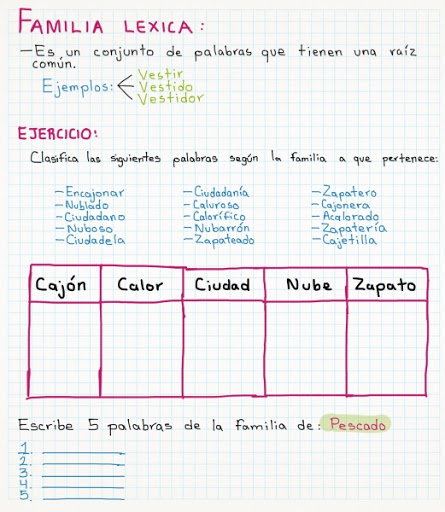 FAMILIA LEXICA:
- Es un conjunto de palabras que tienen una raíz
común.
Ejemplos: Vestir
Vestido
Vestidor
EJERCICIO:
Clasifica las siguientes palabras según la familia a que pertenece:
- Encajonar
- Nublado
- Ciudadano
- Nuboso
- Ciudadela
- Ciudadanía
- Caluroso
- Calorífico
- Nubarrón
- Zapateado
- Zapatero
- Cajonera
- Acalorado
- Zapatería
- Cajetilla
Cajón Calor Ciudad Nube Zapato
Escribe 5 palabras de la familia de: Pescado
1.
2.
3.
4.
5.